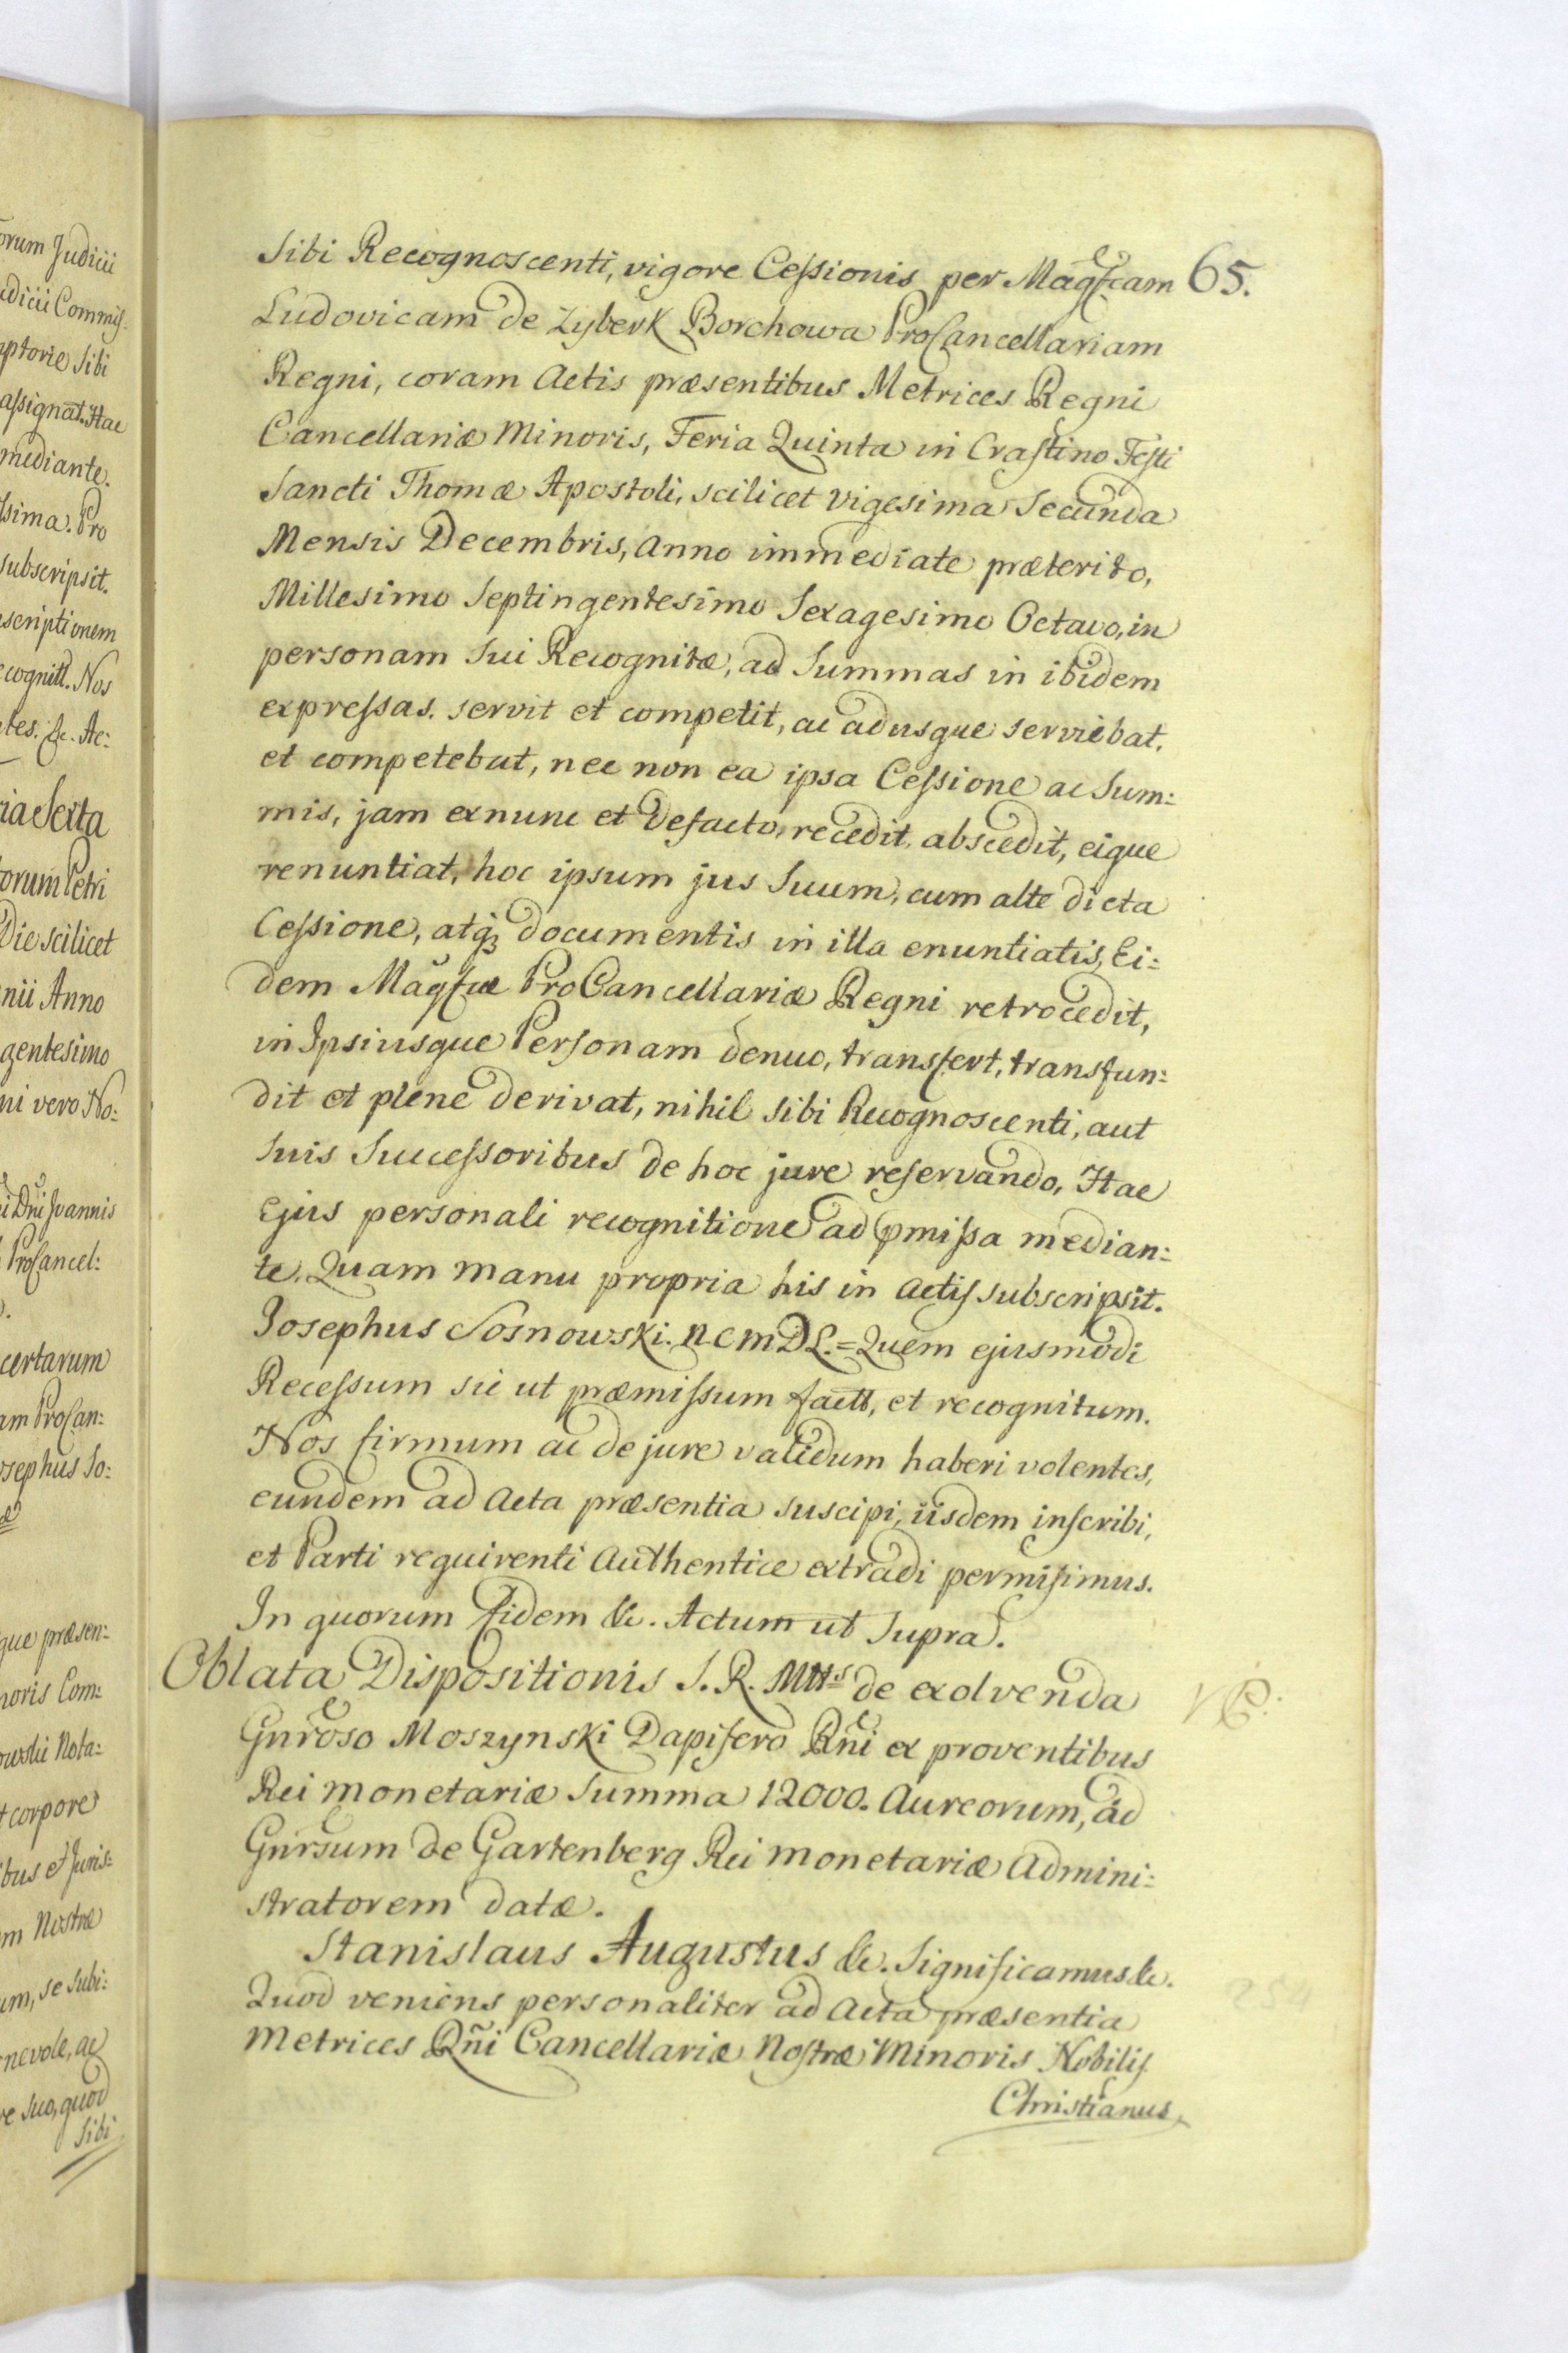 orum Judicii
udicii Commiſ-
ptorie Sibi
aſsignat. Hac
mediante.
ſsima. Pro
subscripsit.
scriptionem
cognitt. Nos
tes. &c. Ac:
ria Sexta
orum Petri
Die scilicet
nii Anno
gentesimo
ni vero No:
i Dni Joannis
ProCancel:
certarum
am ProCan:
osephus So:
que præsen:
noris Com:
owski Nota:
t corpore
ibus et Juris:
m Nostræ
um, se subi:
nevole, ac
re Suo, quod
Sibi
65.
Sibi Recognoscenti, vigore Ceſsionis per Magfcam
Ludovicam de Zyberk Borchowa ProCancellariam
Regni, coram Actis præsentibus Metrices Regni
Cancellariæ Minoris, Feria Quinta in Craſtino Feſti
Sancti Thomæ Apostoli, scilicet vigesima Secunda
Mensis Decembris, Anno immediate præterito,
Millesimo Septingentesimo Sexagesimo Octavo, in
personam Sui Recognitæ, ad Summas in ibidem
expreſsas. servit et competit, ac adusque serviebat,
et competebat, nec non ea ipsa Ceſsione ac Sum:
mis, jam exnunc et defacto, recedit, abscedit, eique
renuntiat, hoc ipsum jus Suum, cum alte dicta
Ceſsione, atq; documentis in illa enuntiatis, Ei:
dem Magfcæ ProCancellariæ Regni retrocedit,
in Ipsiusque Perſonam denuo, transfert, transfun:
dit et plene derivat, nihil Sibi Recognoscenti, aut
Suis Succeſsoribus de hoc jure reſervando, Hac
Ejus personali recognitione ad pmiſsa median:
te. Quam manu propria his in Actiſ subscripsit.
Josephus Sosnowski. N C M D L. = Quem ejusmodi
Receſsum sic ut præmiſsum factt, et recognitum.
Nos firmum ac de jure validum haberi volentes,
eundem ad Acta præsentia suscipi, iisdem inſcribi,
et Parti requirenti Authentice extradi permiſimus.
In quorum fidem &c. Actum ut Supra.
Oblata Dispositionis S. R. Mtts de exolvenda
Gnroso Moszynski Dapifero Rñi ex proventibus
Rei monetariæ Summa 12000. Aureorum, ad
Gnrsum de Gartenberg Rei monetariæ Admini:
stratorem datæ.
Stanislaus Augustus &c. Significamus &c.
Quod veniens personaliter ad Acta præsentia
Metrices Rñi Cancellariæ Noſtræ Minoris Nobiliſ
Christianus